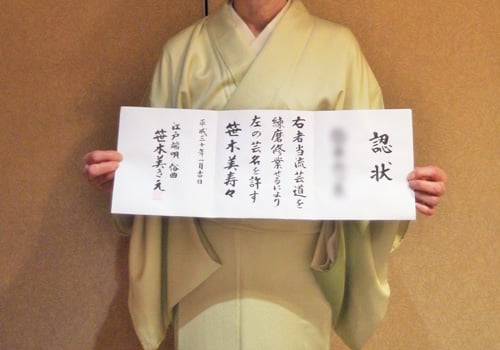 認状
右者当流芸道を
練磨修業せるにより
左の芸名を許す
笹木美寿々
平成三十年一月吉日
江戸端唄 俗曲
笹木美きえ